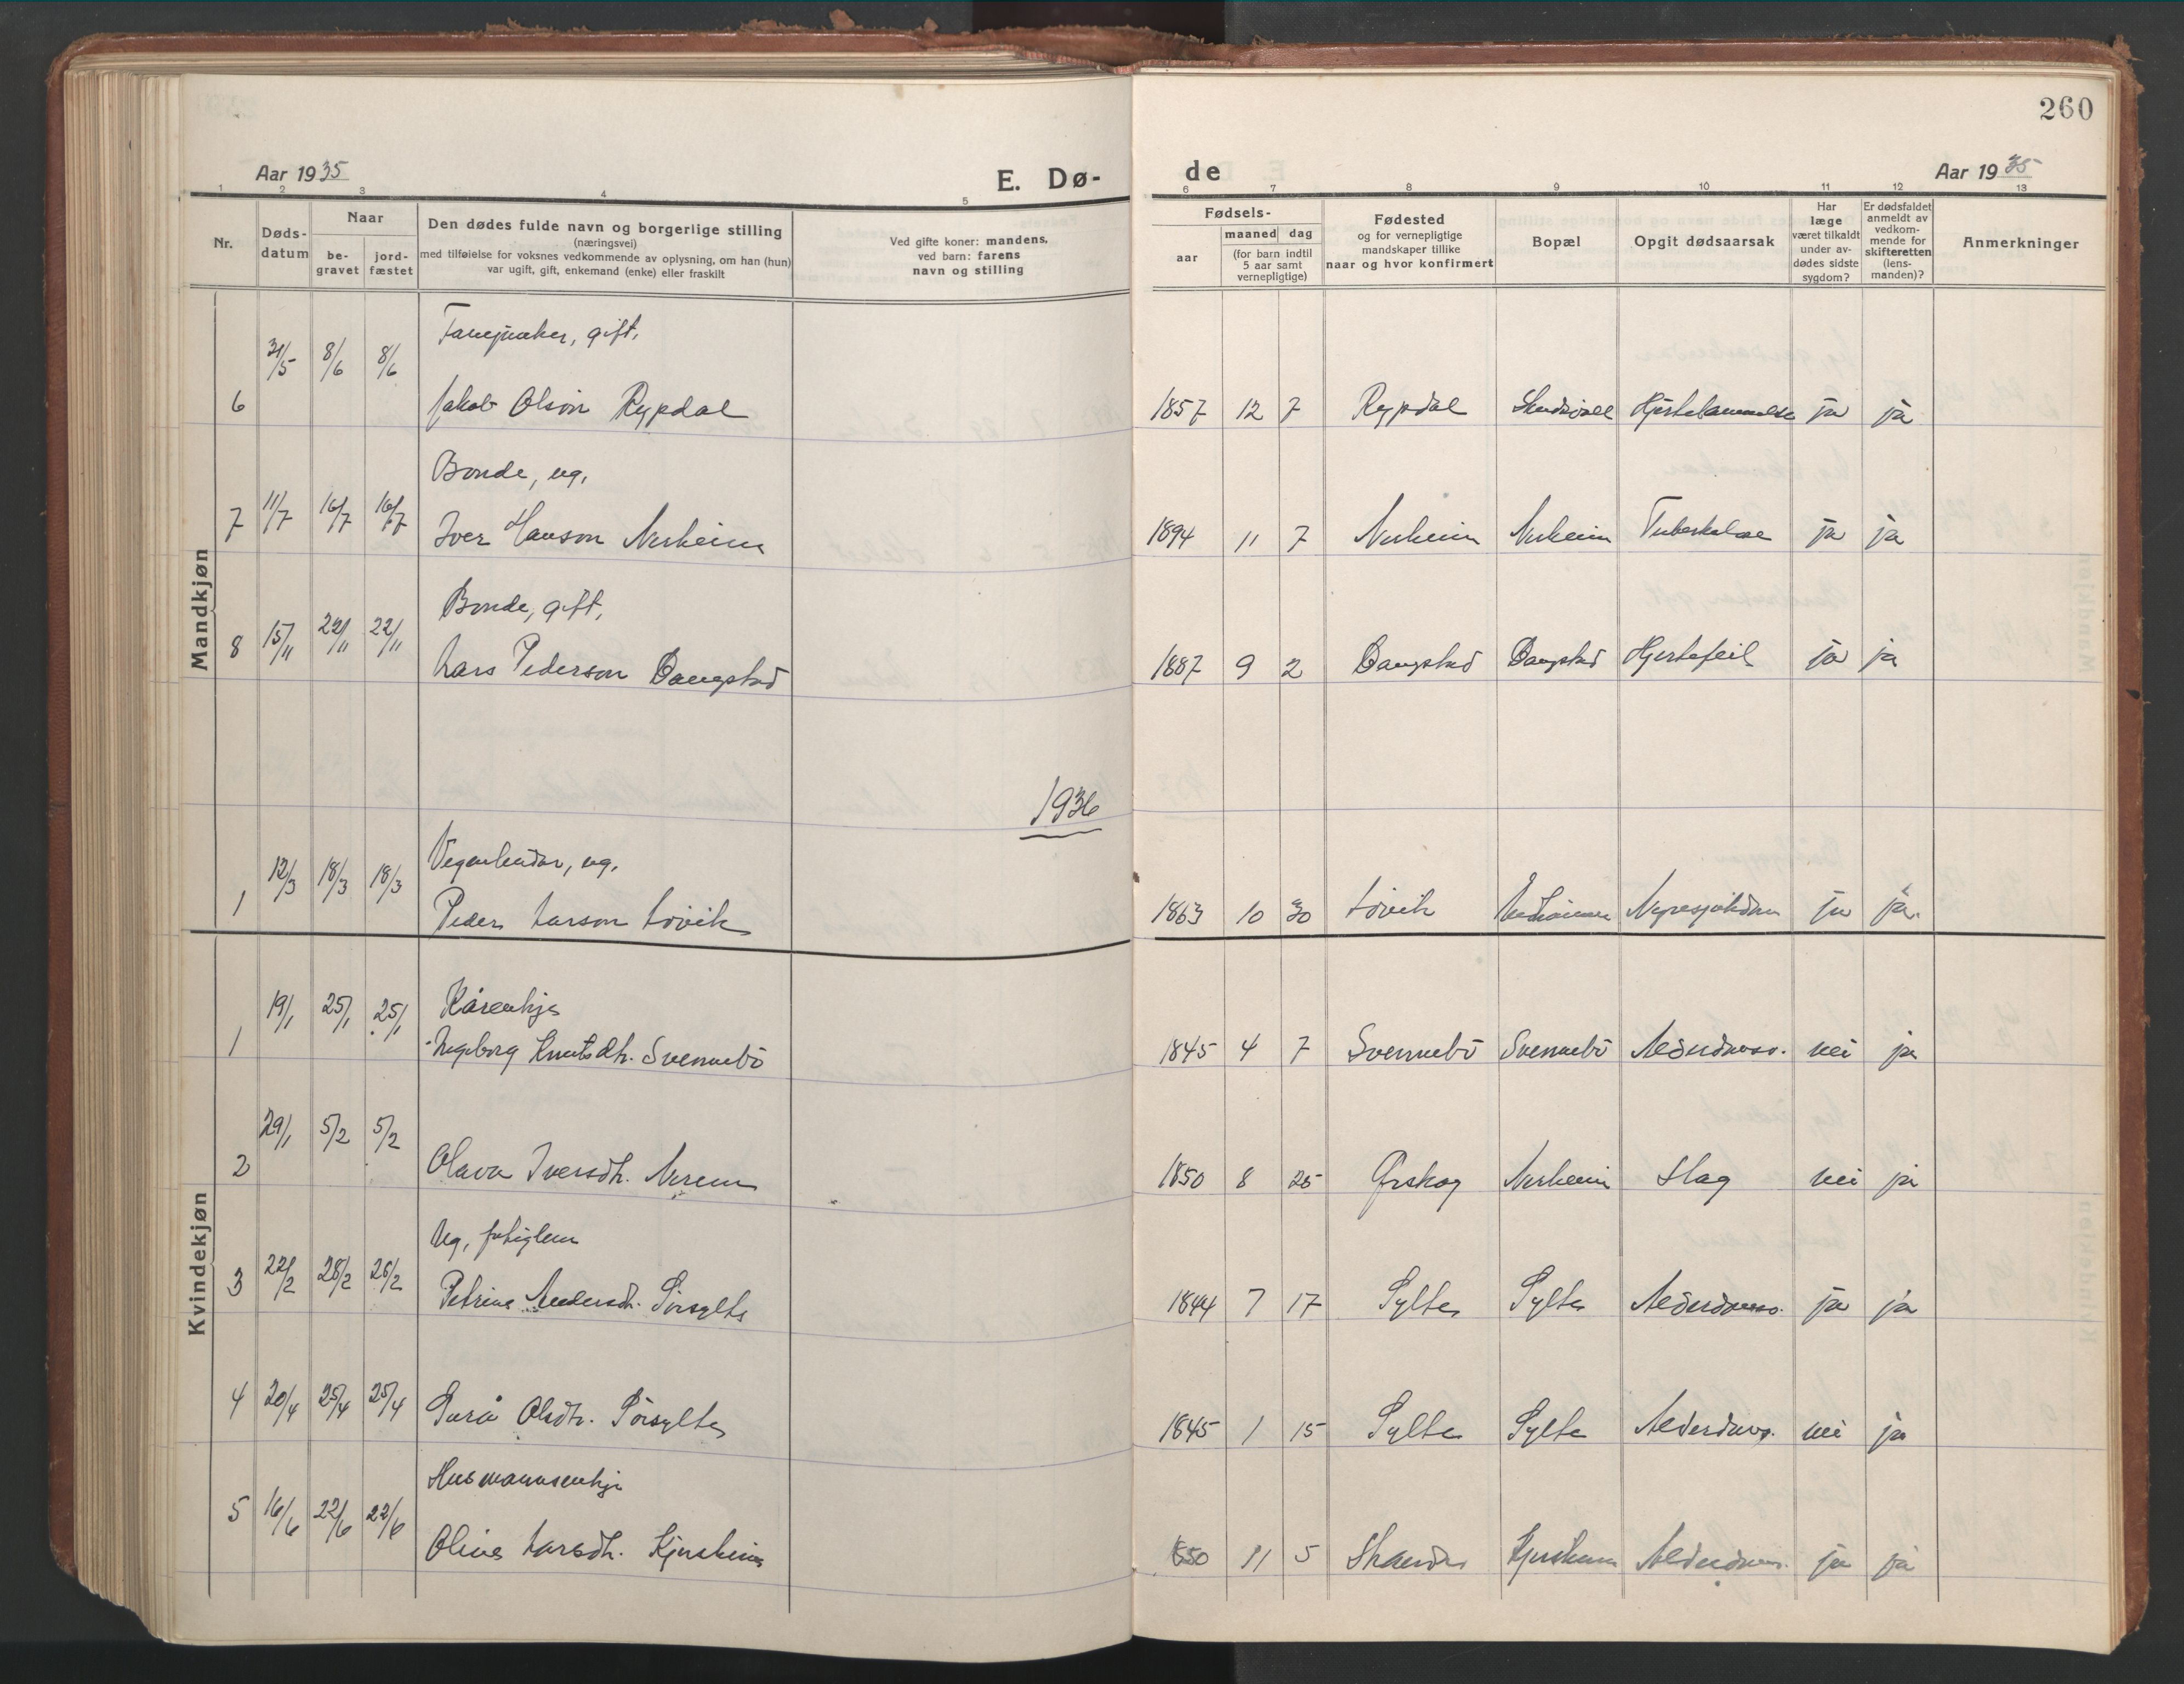 260
Aar 1935
E. Dø-
de
Aar 1935
1 2 3 4 5 6 7 8 9 10 11 12 13
Nr.
Døds-
datum
Naar
be-
gravet
jord-
fæstet
Den dødes fulde navn og borgerlige stilling
(næringsvei)
med tilføielse for voksnes vedkommende av oplysning, om han (hun)
var ugift, gift, enkemand (enke) eller fraskilt
Ved gifte koner: mandens,
ved barn: farens
navn og stilling
Fødsels-
aar
maaned dag
(for barn indtil
5 aar samt
vernepligtige)
Fødested
og for vernepligtige
mandskaper tillike
naar og hvor konfirmert
Bopæl
Opgit dødsaarsak
Har
læge
været tilkaldt
under av-
dødes sidste
sygdom?
Er dødsfaldet
anmeldt av
vedkom-
mende for
skifteretten
(lens-
manden)?
Anmerkninger
Mandkjøn
gift,
6 31/5 8/6 8/6 Jakob Olson Rypdal 1857 12 7 Rypdal ja ja
Bonde, ug,
7 11/7 16/7 16/7 Iver Hanson Nerheim 1894 11 7 Nerheim Nerheim Tuberkulose ja ja
Bonde, gift,
8 15/11 22/11 22/11 Lars Pederson Daugstad 1887 9 2 Daugstad Daugstad Hjertefeil ja ja
1936
Vegarbeidar, ug,
1 12/3 18/3 18/3 Peder Larson Løvik 1863 10 30 Løvik ja ja.
Kvindekjøn
Kårenkje
1 19/1 25/1 25/1 Ingeborg Knutsdtr. Svennebö 1845 4 7 Svennebö Svennebö nei ja
2 29/1 5/2 5/2 Olava Iversdtr. Nerem 1850 8 25 Ørskog Nerheim Slag nei ja
Ug,
3 22/2 28/2 28/2 Petrine Andersdtr. Sörsylte 1844 7 17 Sylte Sylte ja ja
4 20/4 25/4 25/4 Olsdtr. Sörsylte 1845 1 15 Sylte Sylte nei ja
Husmannsenkje
5 16/6 22/6 22/6 Oline Larsdtr. 1850 11 5 ja ja